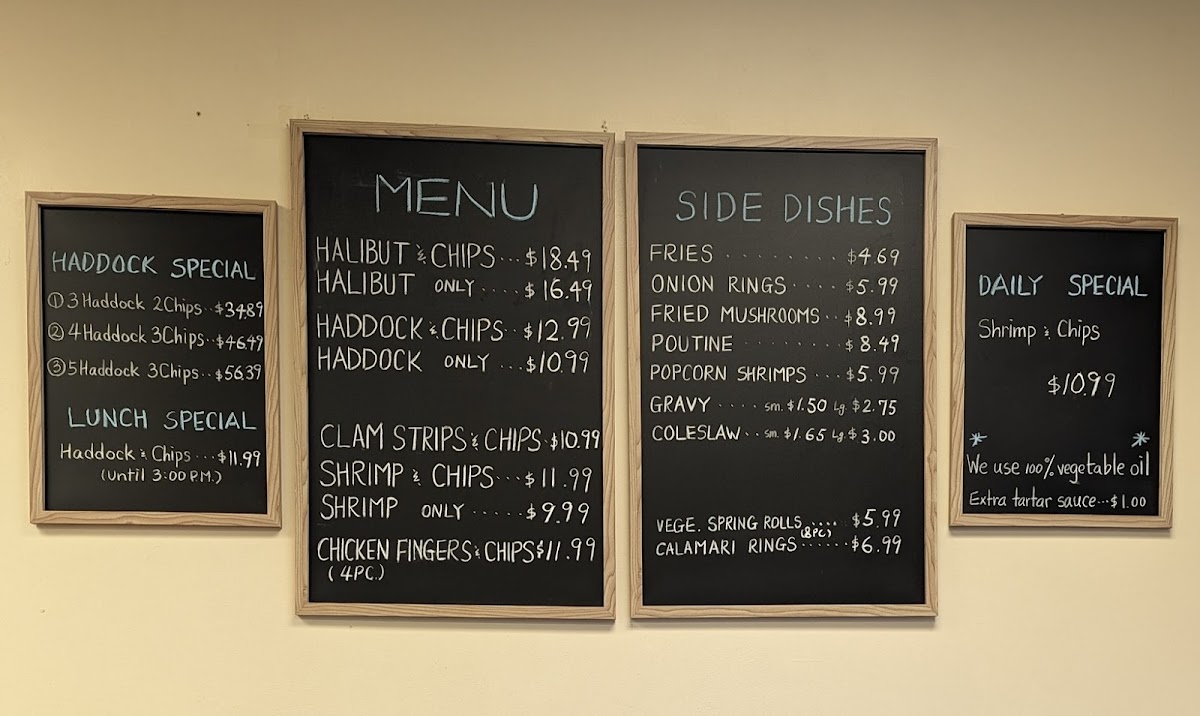 HADDOCK SPECIAL
① 3 Haddock 2 Chips..$34.89
② 4 Haddock 3 Chips..$46.49
③ 5 Haddock 3 Chips..$56.39
LUNCH SPECIAL
Haddock & Chips...$11.99
(Until 3:00 P.M.)
MENU
HALIBUT & CHIPS...$18.49
HALIBUT ONLY....$16.49
HADDOCK & CHIPS..$12.99
HADDOCK ONLY...$10.99
CLAM STRIPS & CHIPS.$10.99
SHRIMP & CHIPS...$11.99
SHRIMP ONLY.....$9.99
CHICKEN FINGERS & CHIPS $11.99
(4PC.)
SIDE DISHES
FRIES.........$4.69
ONION RINGS....$5.99
FRIED MUSHROOMS..$8.99
POUTINE........$8.49
POPCORN SHRIMPS...$5.99
GRAVY....sm. $1.50 Lg. $2.75
COLESLAW..sm. $1.65 Lg. $3.00
VEGE. SPRING ROLLS....$5.99
(8PC)
CALAMARI RINGS......$6.99
DAILY SPECIAL
Shrimp & Chips
$10.99
* *
We use 100% vegetable oil
Extra tartar sauce...$1.00